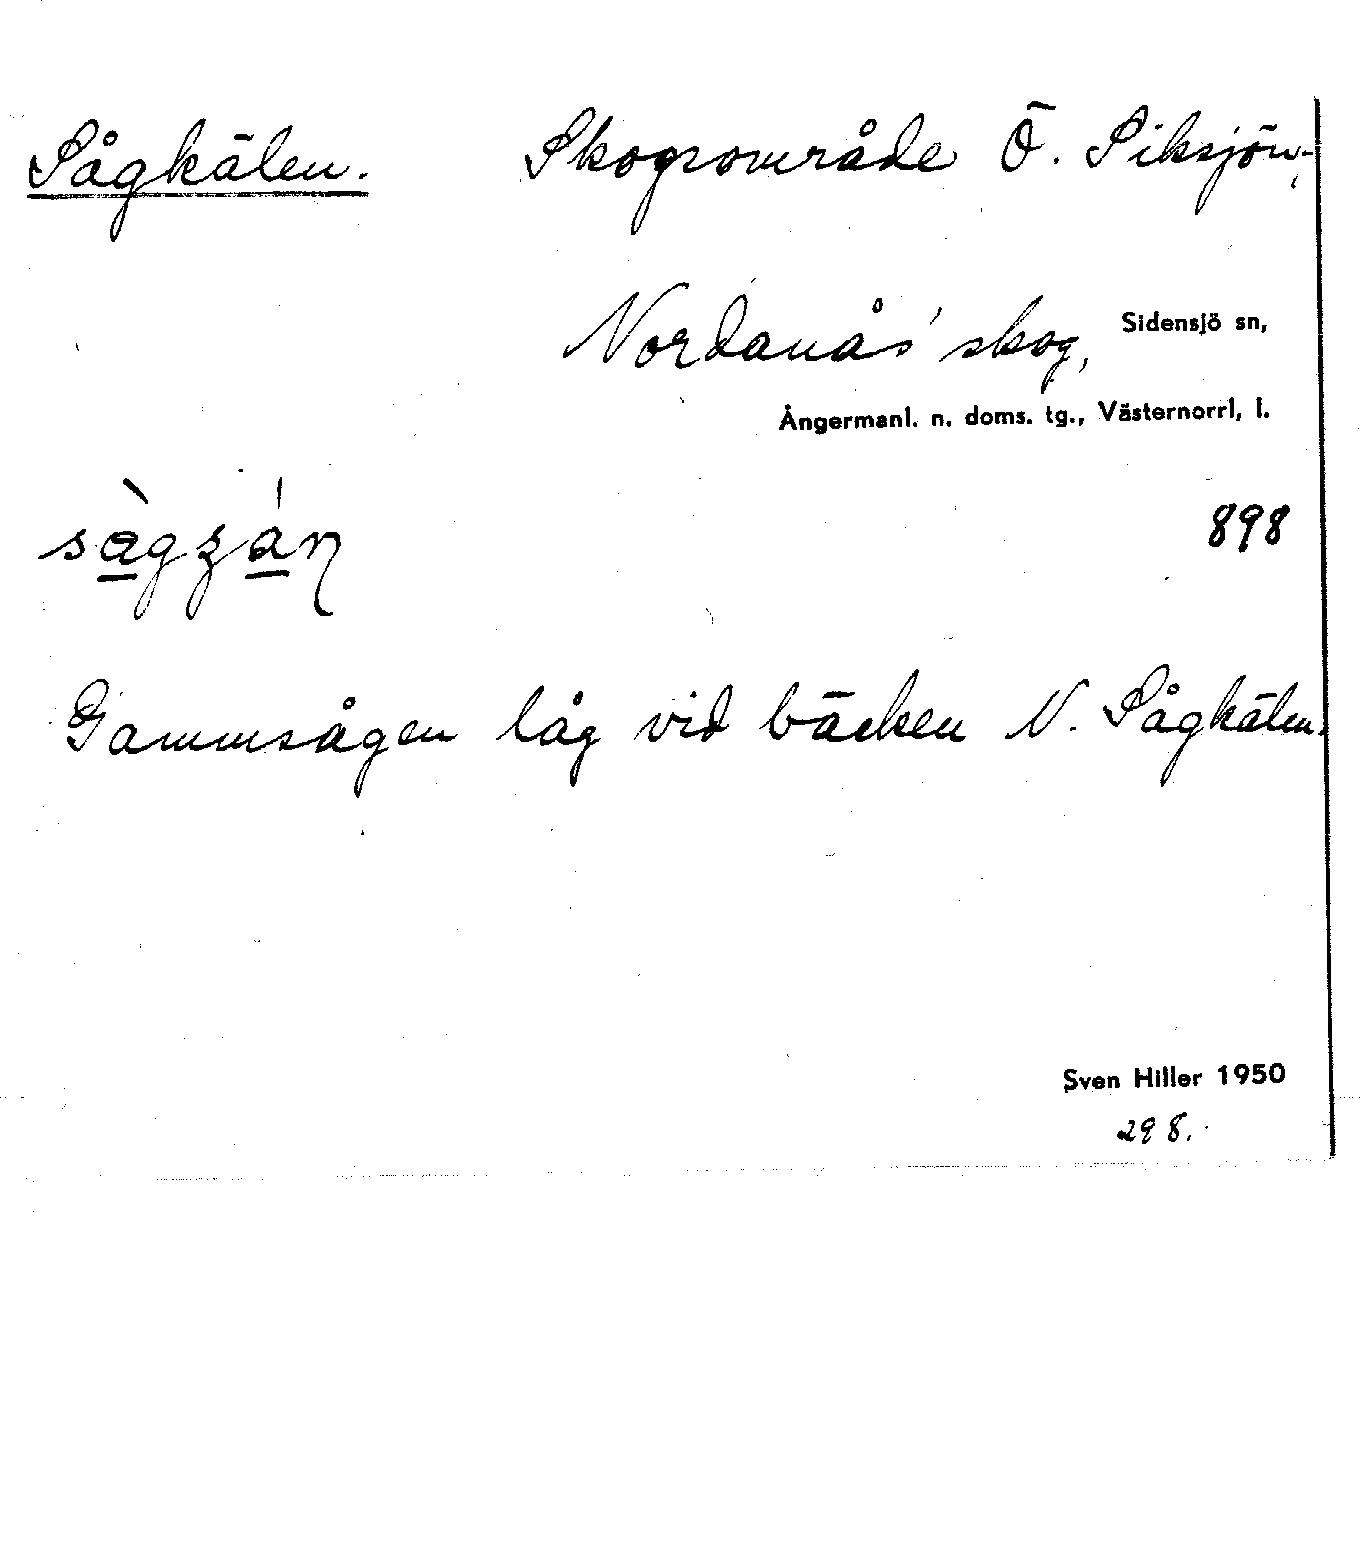 Sågkälen. Skogsområde Ö. Siksjön,
Nordanås' skog, Sidensjö sn,
Ångermanl. n. doms. tg., Västernorrl, l.
898
Gammsågen låg vid bäcken N. Sågkälen.
Sven Hiller 1950
298.